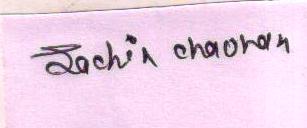 Sachin chaohan